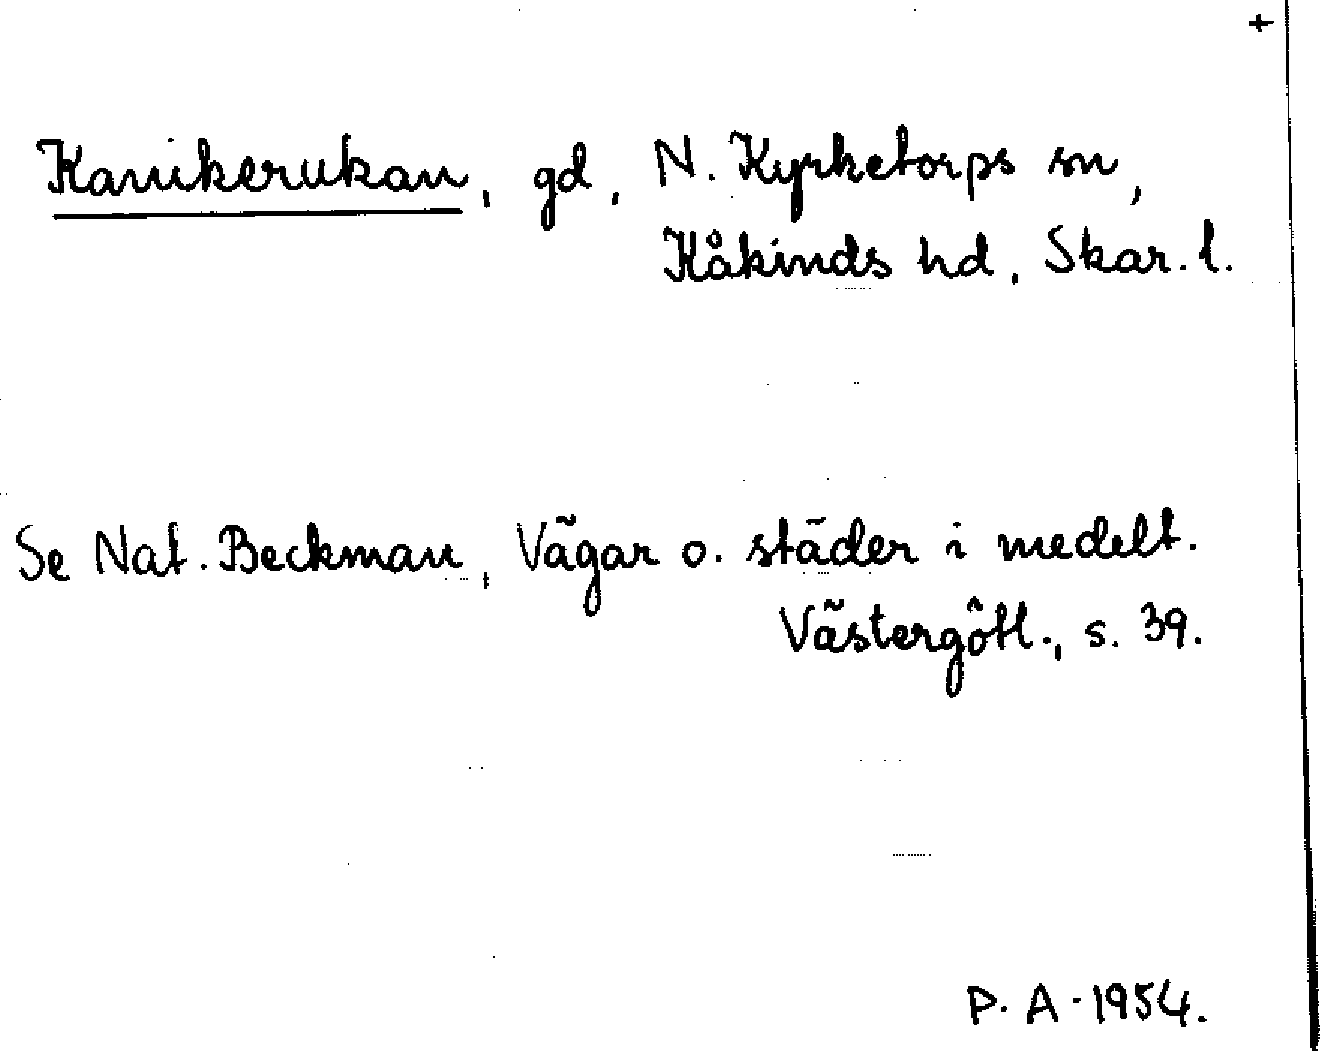 +
Kanikerukan, gd, N. Kyrketorps sn,
Kåkinds hd, Skar. l.
Se Nat. Beckman, Vägar o. städer i medelt.
Västergötl., s. 39.
P. A. 1954.